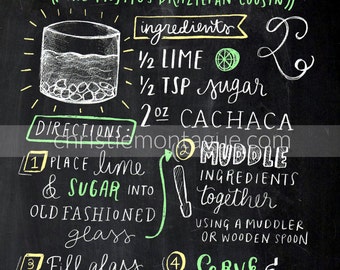 ((THE MOJITO'S BRAZILIAN COUSIN))
ingredients
½ LIME
½ TSP sugar
2oz CACHACA
DIRECTIONS:
1 PLACE lime
& SUGAR INTO
OLD FASHIONED
glass
2 MUDDLE
INGREDIENTS
together
USING A MUDDLER
OR WOODEN SPOON
christiemontague.com
3 Fill glass
4 &